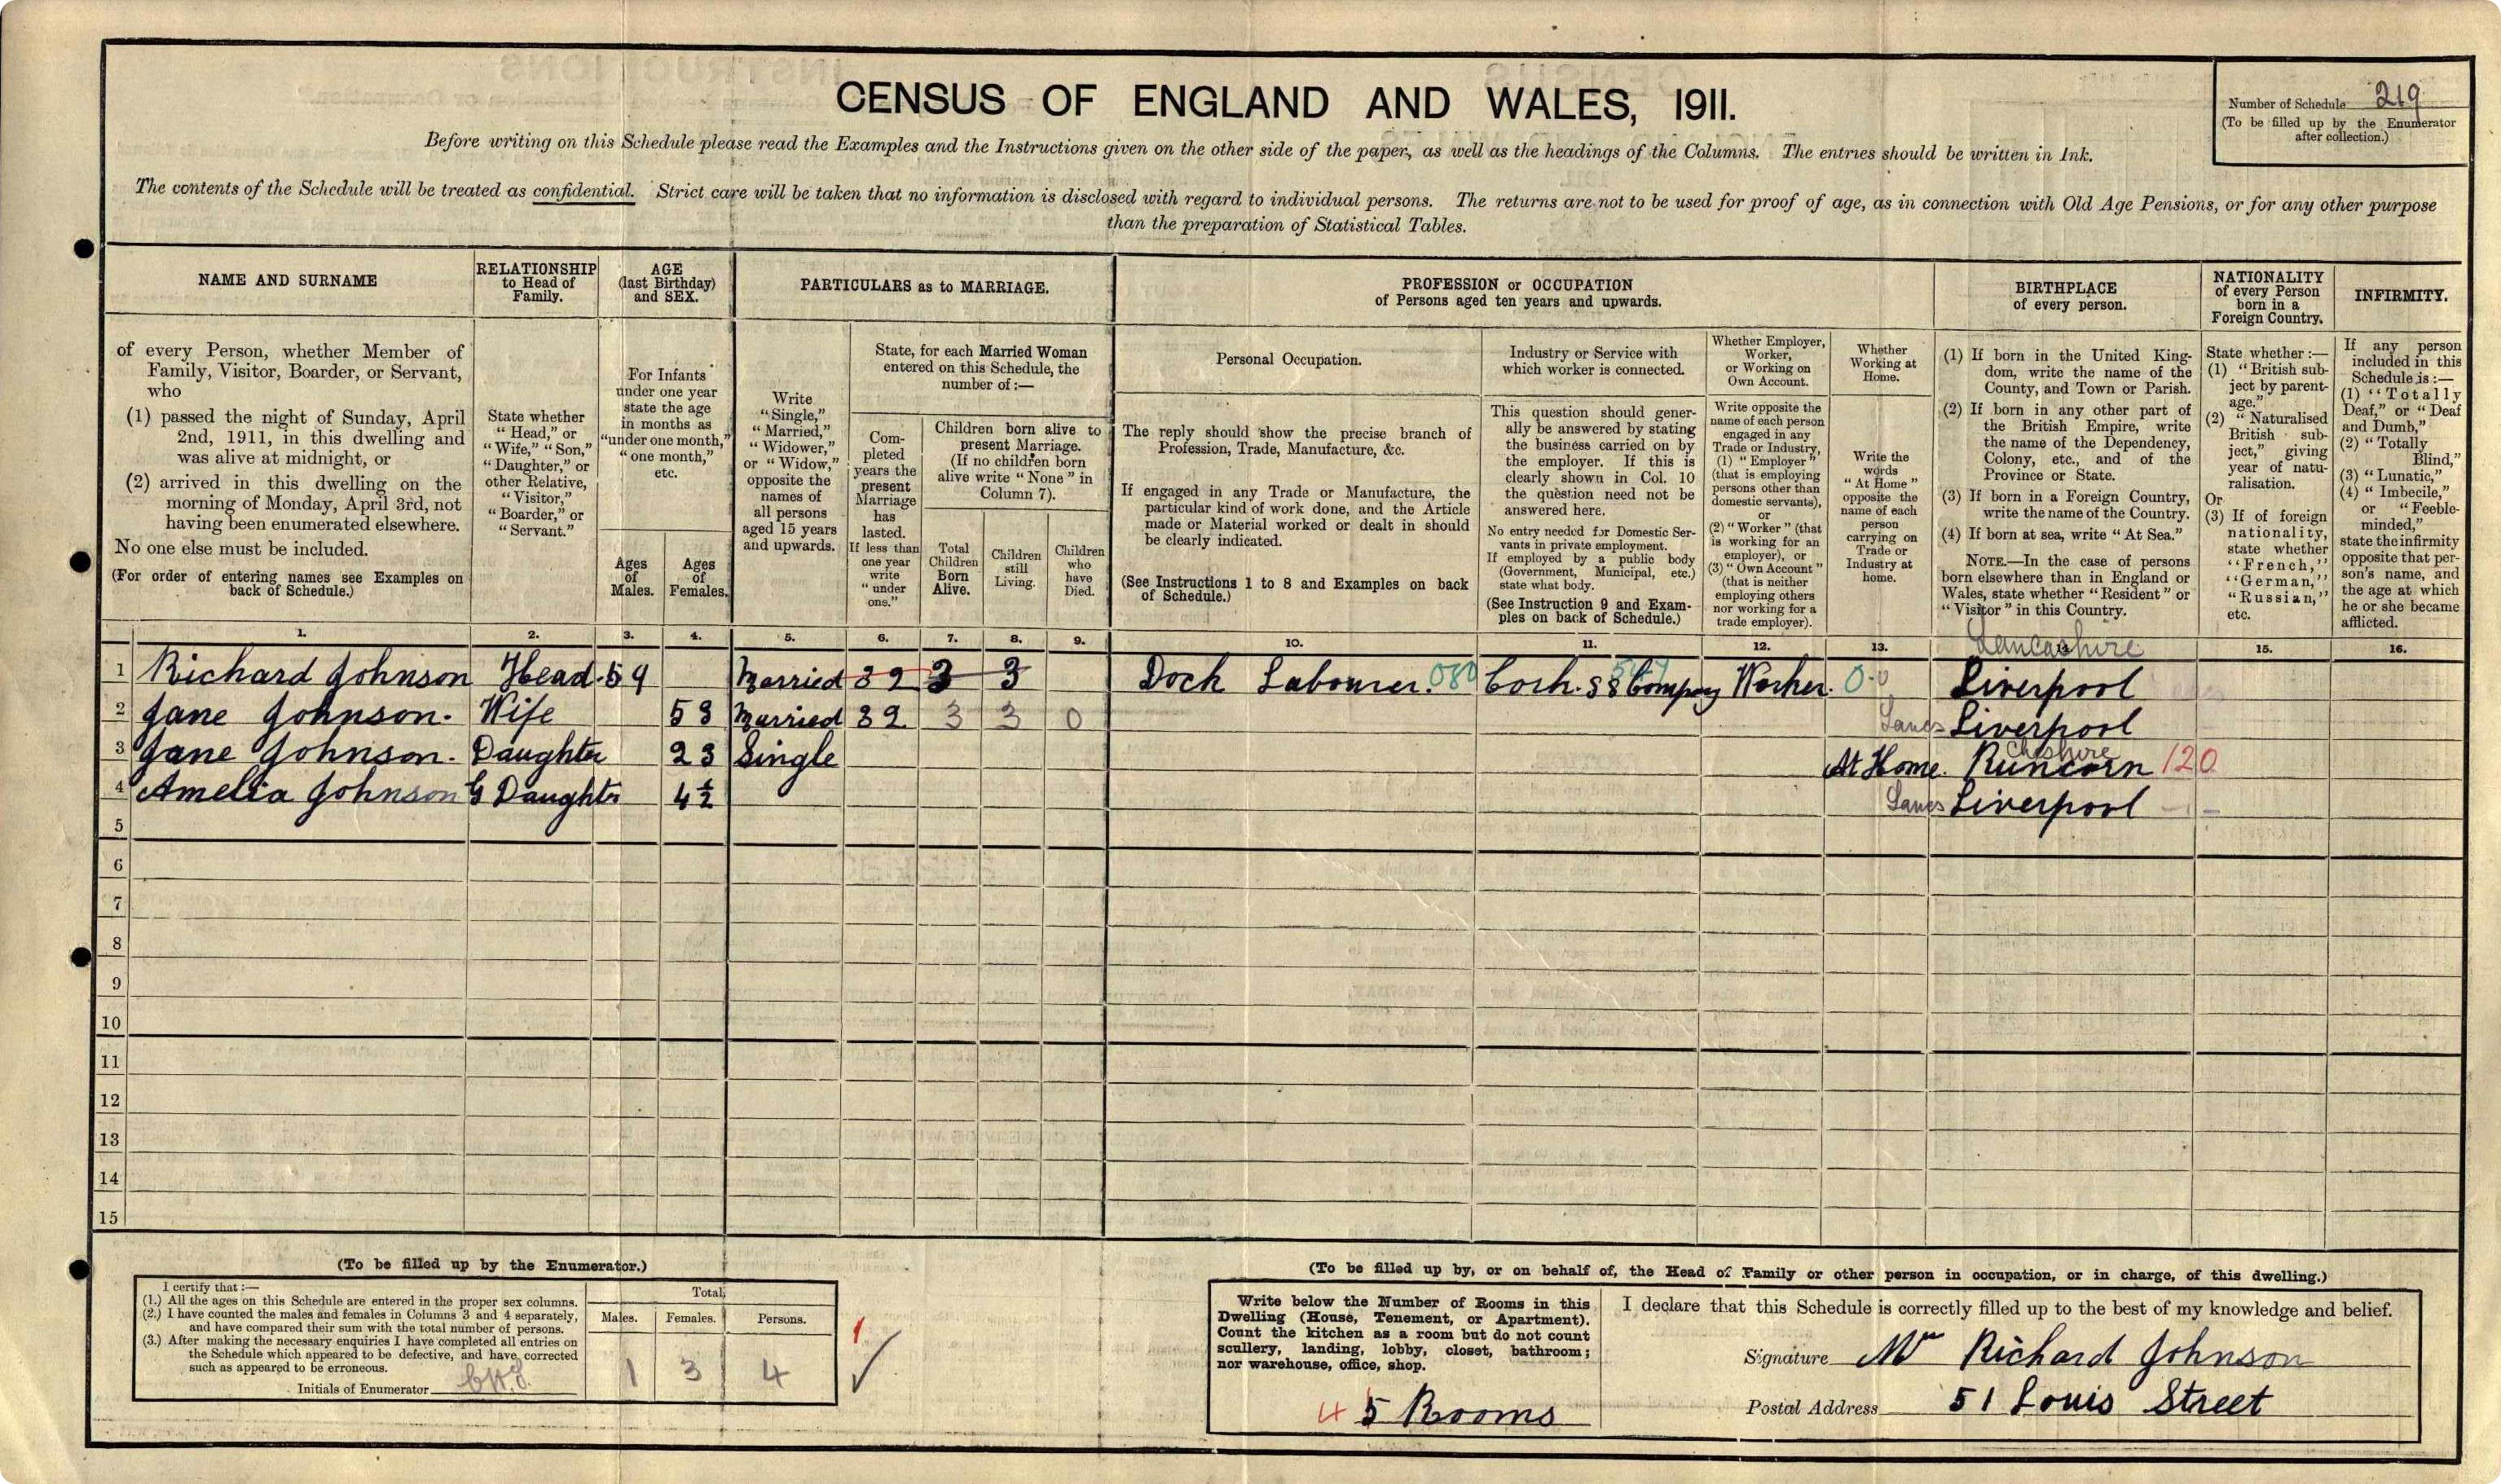 CENSUS OF ENGLAND AND WALES, 1911.
Number of Schedule 219
(To be filled up by the Enumerator
after collection.)
Before writing on this Schedule please read the Examples and the Instructions given on the other side of the paper, as well as the headings of the Columns. The entries should be written in Ink.
The contents of the Schedule will be treated as confidential. Strict care will be taken that no information is disclosed with regard to individual persons. The returns are not to be used for proof of age, as in connection with Old Age Pensions, or for any other purpose
than the preparation of Statistical Tables.
NAME AND SURNAME
of every Person, whether Member of
Family, Visitor, Boarder, or Servant,
who
(1) passed the night of Sunday, April
2nd, 1911, in this dwelling and
was alive at midnight, or
(2) arrived in this dwelling on the
morning of Monday, April 3rd, not
having been enumerated elsewhere.
No one else must be included.
(For order of entering names see Examples on
back of Schedule.)
RELATIONSHIP
to Head of
Family.
State whether
"Head," or
"Wife," "Son,"
"Daughter," or
other Relative,
"Visitor,"
"Boarder," or
"Servant."
AGE
(last Birthday)
and SEX.
For Infants
under one year
state the age
in months as
"under one month,"
"one month,"
etc.
Ages
of
Males.
Ages
of
Females.
PARTICULARS as to MARRIAGE.
Write
"Single,"
"Married,"
"Widower,"
or "Widow,"
opposite the
names of
all persons
aged 15 years
and upwards.
State, for each Married Woman
entered on this Schedule, the
number of:—
Com-
pleted
years the
present
Marriage
has
lasted.
If less than
one year
write
"under
one."
Children born alive to
present Marriage.
(If no children born
alive write "None" in
Column 7).
Total
Children
Born
Alive.
Children
still
Living.
Children
who
have
Died.
PROFESSION or OCCUPATION
of Persons aged ten years and upwards.
Personal Occupation.
The reply should show the precise branch of
Profession, Trade, Manufacture, &c.
If engaged in any Trade or Manufacture, the
particular kind of work done, and the Article
made or Material worked or dealt in should
be clearly indicated.
(See Instructions 1 to 8 and Examples on back
of Schedule.)
Industry or Service with
which worker is connected.
This question should gener-
ally be answered by stating
the business carried on by
the employer. If this is
clearly shown in Col. 10
the question need not be
answered here.
No entry needed for Domestic Ser-
vants in private employment.
If employed by a public body
(Government, Municipal, etc.)
state what body.
(See Instruction 9 and Exam-
ples on back of Schedule.)
Whether Employer,
Worker,
or Working on
Own Account.
Write opposite the
name of each person
engaged in any
Trade or Industry,
(1) "Employer"
(that is employing
persons other than
domestic servants),
or
(2) "Worker" (that
is working for an
employer), or
(3) "Own Account"
(that is neither
employing others
nor working for a
trade employer).
Whether
Working at
Home.
Write the
words
"At Home"
opposite the
name of each
person
carrying on
Trade or
Industry at
home.
BIRTHPLACE
of every person.
(1) If born in the United King-
dom, write the name of the
County, and Town or Parish.
(2) If born in any other part of
the British Empire, write
the name of the Dependency,
Colony, etc., and of the
Province or State.
(3) If born in a Foreign Country,
write the name of the Country.
(4) If born at sea, write "At Sea."
NOTE.—In the case of persons
born elsewhere than in England or
Wales, state whether "Resident" or
"Visitor" in this Country.
NATIONALITY
of every Person
born in a
Foreign Country.
State whether:—
(1) "British sub-
ject by parent-
age."
(2) "Naturalised
British sub-
ject," giving
year of natu-
ralisation.
Or
(3) If of foreign
nationality,
state whether
"French,"
"German,"
"Russian,"
etc.
INFIRMITY.
If any person
included in this
Schedule is:—
(1) "Totally
Deaf," or "Deaf
and Dumb,"
(2) "Totally
Blind,"
(3) "Lunatic,"
(4) "Imbecile,"
or "Feeble-
minded,"
state the infirmity
opposite that per-
son's name, and
the age at which
he or she became
afflicted.
1. 2. 3. 4. 5. 6. 7. 8. 9. 10. 11. 12. 13. 14. 15. 16.
Lancashire
1 Richard Johnson Head 59 Married 32 3 3 Dock Labourer. 080 Cork. SS Company Worker. Liverpool
2 Jane Johnson. Wife 53 Married 32 3 3 0 Lancs Liverpool
Cheshire
3 Jane Johnson. Daughter 23 Single At Home. Runcorn 120
4 Amelia Johnson G Daughter 4½ Lancs Liverpool
5
6
7
8
9
10
11
12
13
14
15
(To be filled up by the Enumerator.)
I certify that:—
(1.) All the ages on this Schedule are entered in the proper sex columns.
(2.) I have counted the males and females in Columns 3 and 4 separately,
and have compared their sum with the total number of persons.
(3.) After making the necessary enquiries I have completed all entries on
the Schedule which appeared to be defective, and have corrected
such as appeared to be erroneous.
Initials of Enumerator
Total.
Males. Females. Persons.
1 3 4
(To be filled up by, or on behalf of, the Head of Family or other person in occupation, or in charge, of this dwelling.)
Write below the Number of Rooms in this
Dwelling (House, Tenement, or Apartment).
Count the kitchen as a room but do not count
scullery, landing, lobby, closet, bathroom;
nor warehouse, office, shop.
4 5 Rooms
I declare that this Schedule is correctly filled up to the best of my knowledge and belief.
Signature Mr Richard Johnson
Postal Address 51 Louis Street